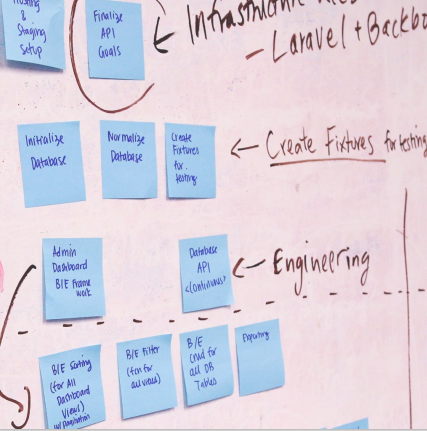 Hosting
&
Staging
Setup
Finalize
API
Goals
← Infrastructure
- Laravel + Backbo
Initialize
Database
Normalize
Database
Create
Fixtures
for
testing
← Create Fixtures for testing
Admin
Dashboard
B/E Frame
work
Database
API
<(continuous)
← Engineering
B/E Sorting
(for All
Dashboard
Views)
w/ pagination
B/E Filter
(fcn for
all views)
B/E
crud for
all DB
Tables
Exporting